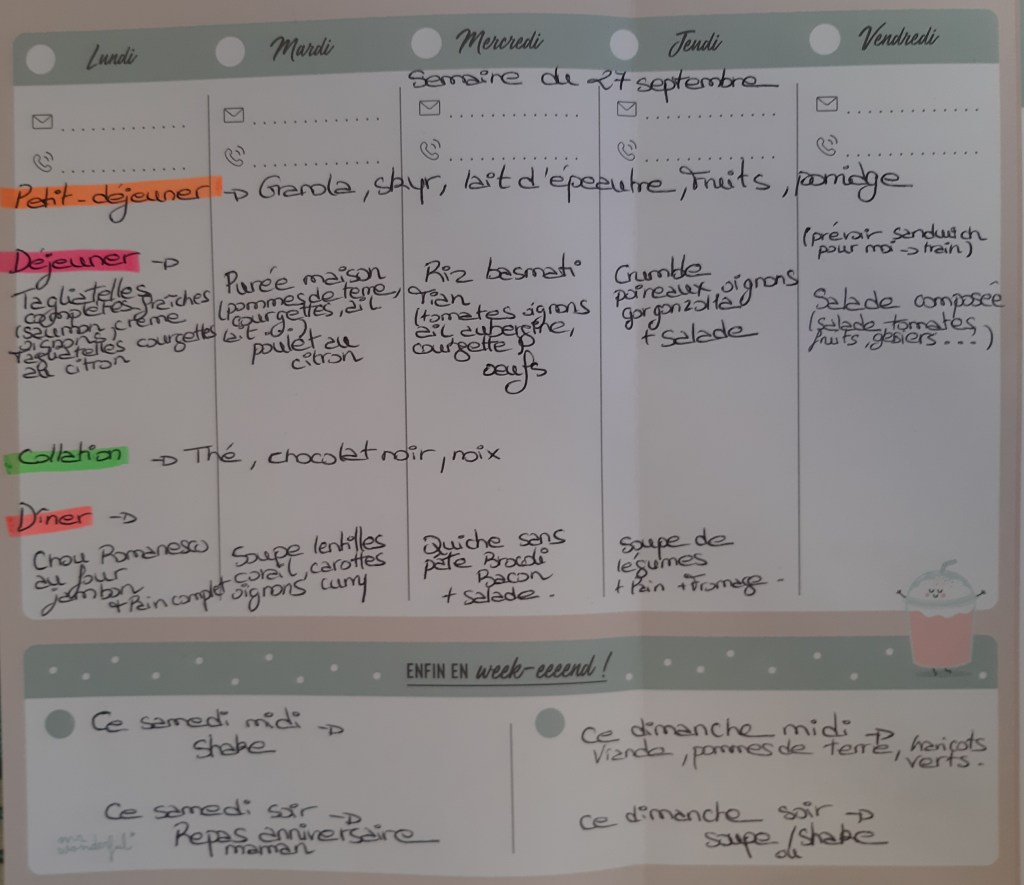 Lundi
Mardi
Mercredi
Jeudi
Vendredi
Semaine du 27 septembre
Petit-déjeuner → Granola, skyr, lait d'épeautre, fruits, porridge
(prévoir sandwich
pour moi → train)
Déjeuner →
Tagliatelles
complètes fraîches
(saumon, crème
oignons
Tagliatelles courgettes
au citron
Purée maison
(pommes de terre,
courgettes, ail
lait...)
poulet au
citron
Riz basmati
Tian
(tomates oignons
ail aubergine,
courgette)
oeufs
Crumble
poireaux oignons
gorgonzola
+ salade
Salade composée
(salade, tomates,
fruits, gésiers...)
Collation → Thé, chocolat noir, noix
Dîner →
Chou Romanesco
au four
jambon
+ Pain complet
Soupe lentilles
corail, carottes
oignons curry
Quiche sans
pâte Brocoli
Bacon
+ salade.
Soupe de
légumes
+ Pain + Fromage.
ENFIN EN week-eeeend !
Ce samedi midi →
Shake
Ce samedi soir →
Repas anniversaire
maman
mr wonderful
Ce dimanche midi →
Viande, pommes de terre, haricots
verts.
Ce dimanche soir →
soupe / shake
ou